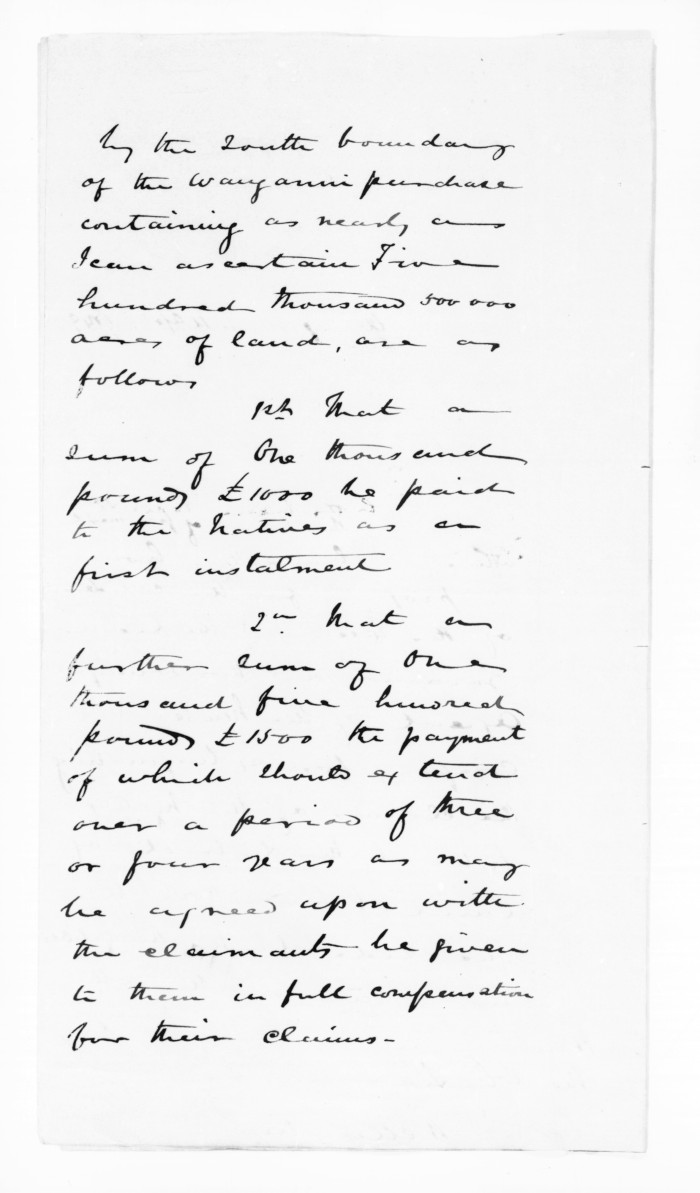 by the South boundary
of the Wanganui purchase
containing as nearly as
I can ascertain Five
hundred thousand 500 000
acres of land, are as
follows
1st That a
sum of One thousand
pounds £1000 be paid
to the Natives as a
first instalment
2n That a
further sum of One
thousand five hundred
pounds £1500 the payment
of which should extend
over a period of three
or four years as may
be agreed upon with
the claimants be given
to them in full compensation
for their claims-